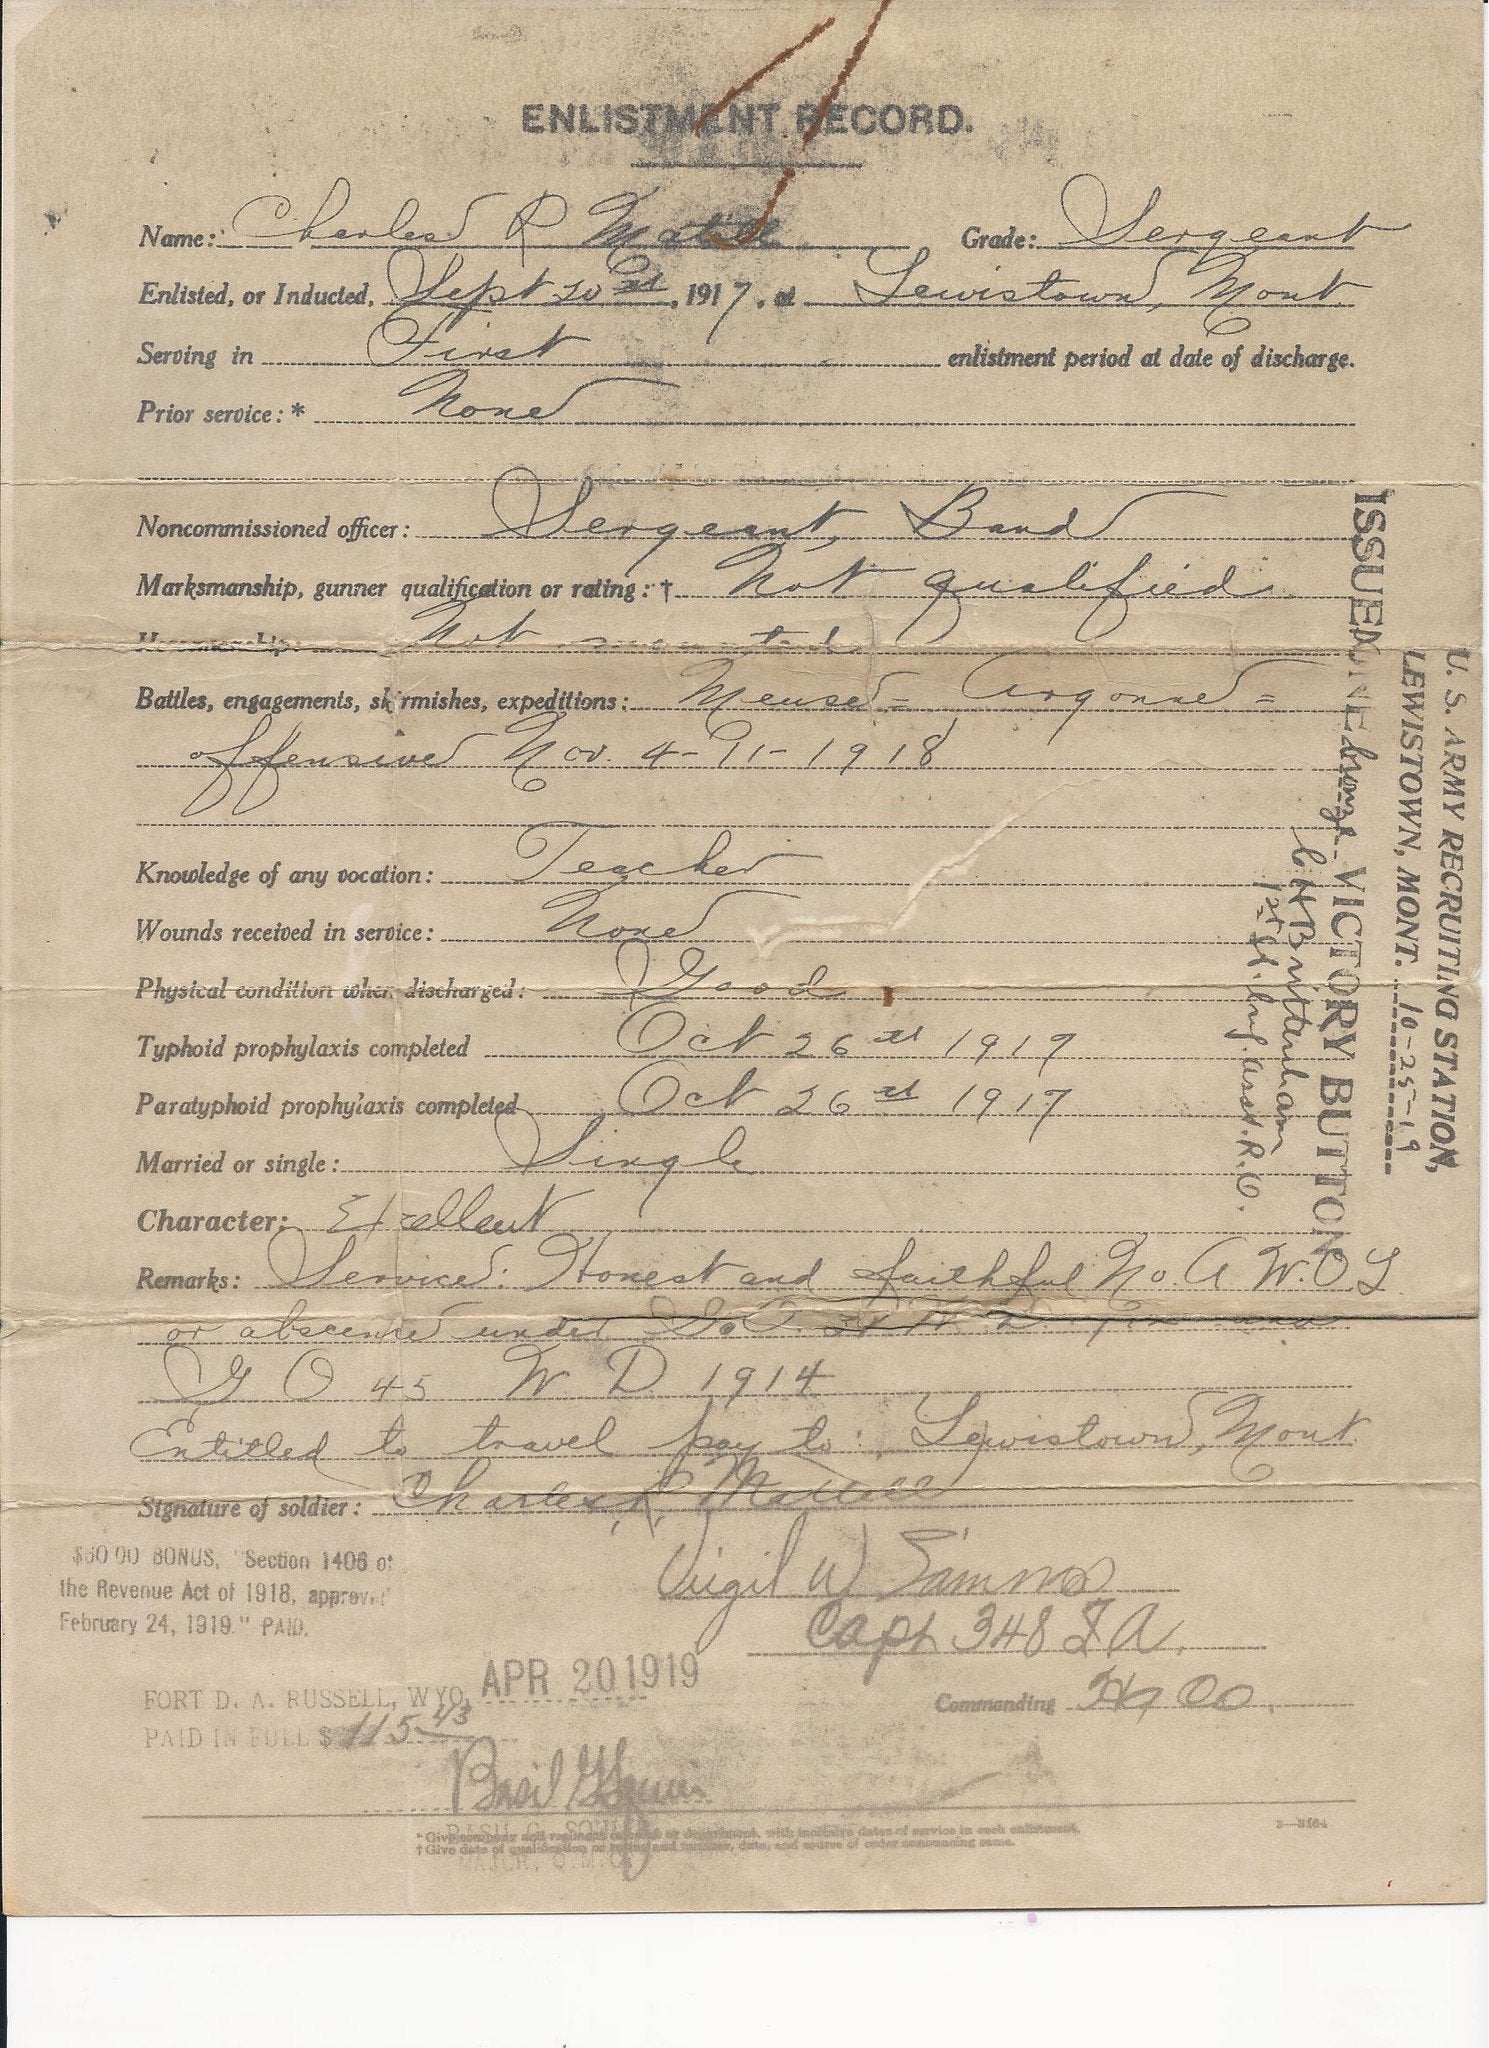 ENLISTMENT RECORD.
Name: Charles R Grade: Sergeant
Enlisted, or Inducted, Sept 20 st, 1917, at Lewistown, Mont.
Serving in First enlistment period at date of discharge.
Prior service: * None
Noncommissioned officer: Sergeant, Band
Marksmanship, gunner qualification or rating: † Not qualified
Horsemanship: Not mounted
Battles, engagements, skirmishes, expeditions: Meuse = Argonne =
offensive Nov. 4-11-1918
Knowledge of any vocation: Teacher
Wounds received in service: None
Physical condition when discharged: Good
Typhoid prophylaxis completed Oct 26 st 1917
Paratyphoid prophylaxis completed Oct 26 st 1917
Married or single: Single
Character: Excellent
Remarks: Service: Honest and faithful No. A W.O L
or absence under
G O 45 W D 1914
Entitled to travel pay to: Lewistown, Mont.
Signature of soldier: Charles R.
Virgil W. Simmons
Capt 348 F A.
Commanding
$60.00 BONUS, "Section 1406 of
the Revenue Act of 1918, approved
February 24, 1919." PAID.
APR 20 1919
FORT D. A. RUSSELL, WYO.
PAID IN FULL $ 115 43
Basil G.
BASIL G.
MAJOR, Q.M.C.
* Give company and regiment or department, with inclusive dates of service in each enlistment.
† Give date of qualification or rating and number, date, and source of order announcing same.
3—3164
U. S. ARMY RECRUITING STATION,
LEWISTOWN, MONT. 10-25-19
ISSUED ONE bronze VICTORY BUTTON
C H Brittenham
1st Asst. R.O.